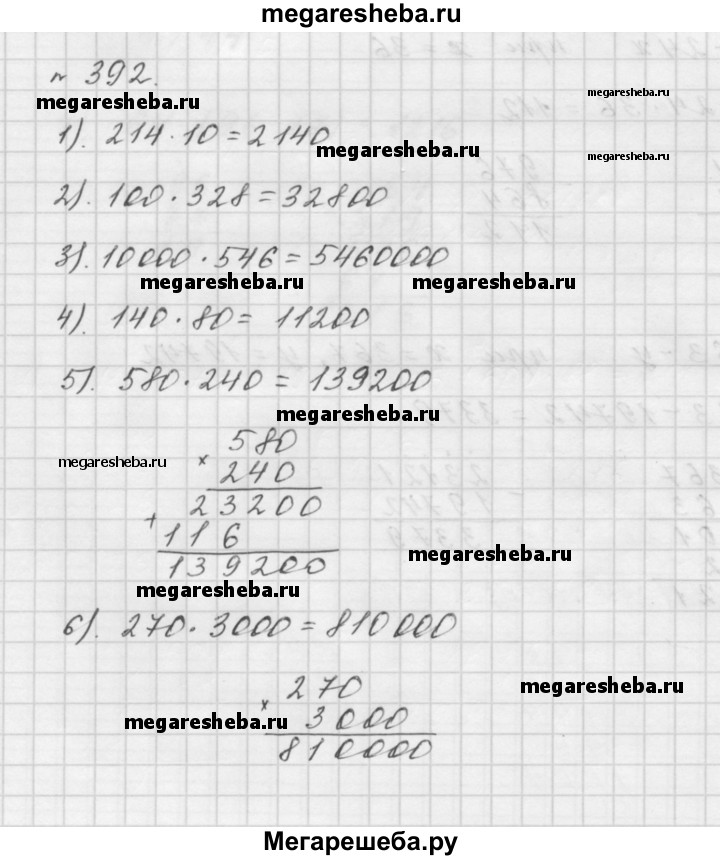 megaresheba.ru
№ 392.
megaresheba.ru
megaresheba.ru
1). 214 · 10 = 2140
megaresheba.ru
megaresheba.ru
2). 100 · 328 = 32800
3). 10000 · 546 = 5460000
megaresheba.ru megaresheba.ru
4). 140 · 80 = 11200
5). 580 · 240 = 139200
megaresheba.ru
580
megaresheba.ru
× 240
23200
+ 116
139200
megaresheba.ru
megaresheba.ru
6). 270 · 3000 = 810000
270
megaresheba.ru
× 3000
megaresheba.ru
810000
Мегарешеба.ру